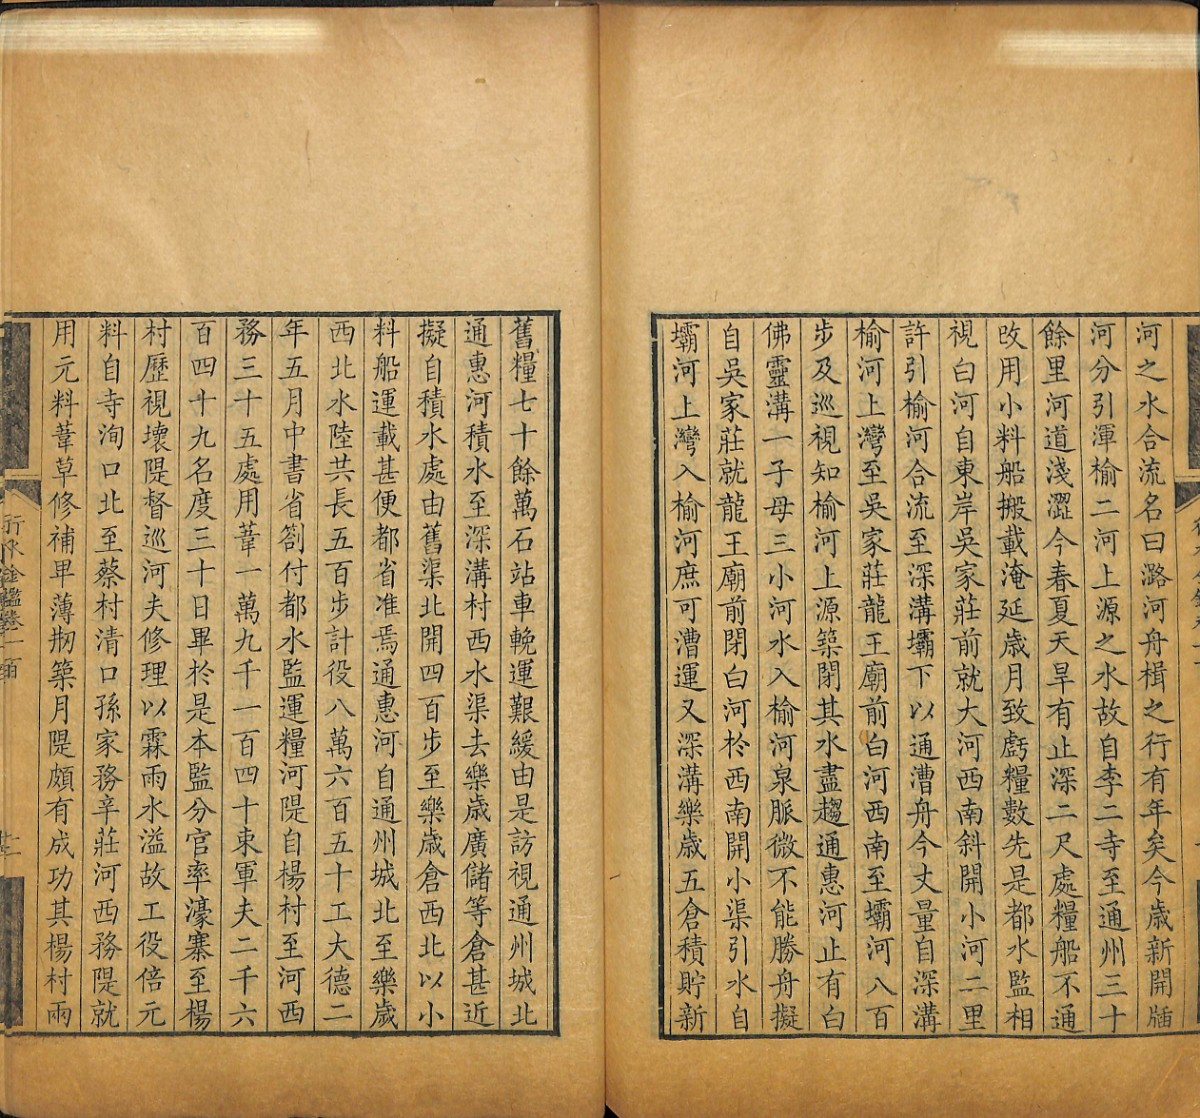 河之水合流名曰潞河舟楫之行有年矣今歳新開牐
河分引渾榆二河上源之水故自李二寺至通州三十
餘里河道淺澀今春夏天旱有止深二尺處糧船不通
改用小料船搬載淹延歳月致虧糧數先是都水監相
視白河自東岸吳家莊前就大河西南斜開小河二里
許引榆河合流至深溝壩下以通漕舟今丈量自深溝
榆河上灣至吳家莊龍王廟前白河西南至壩河八百
步及巡視知榆河上源築閉其水盡趨通惠河止有白
佛靈溝一子母三小河水入榆河泉脈微不能勝舟擬
自吳家莊就龍王廟前閉白河於西南開小渠引水自
壩河上灣入榆河庶可漕運又深溝樂歳五倉積貯新
舊糧七十餘萬石站車輓運艱緩由是訪視通州城北
通惠河積水至深溝村西水渠去樂歳廣儲等倉甚近
擬自積水處由舊渠北開四百步至樂歳倉西北以小
料船運載甚便都省准焉通惠河自通州城北至樂歳
西北水陸共長五百步計役八萬六百五十工大德二
年五月中書省劄付都水監運糧河隄自楊村至河西
務三十五處用葦一萬九千一百四十束軍夫二千六
百四十九名度三十日畢於是本監分官率濠寨至楊
村歷視壞隄督巡河夫修理以霖雨水溢故工役倍元
料自寺洵口北至蔡村清口孫家務辛莊河西務隄就
用元料葦草修補畢薄剏築月隄頗有成功其楊村兩
行水金鑑卷一百